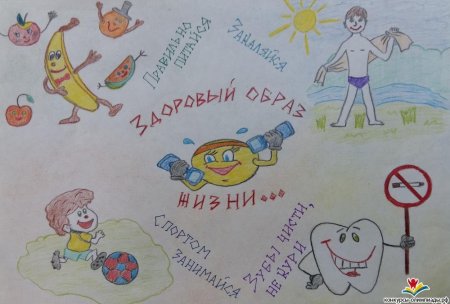 Правильно
питайся
Закаляйся
Здоровый образ
жизни...
Спортом
занимайся
Зубы чисти,
не кури
конкурсы-олимпиады.рф